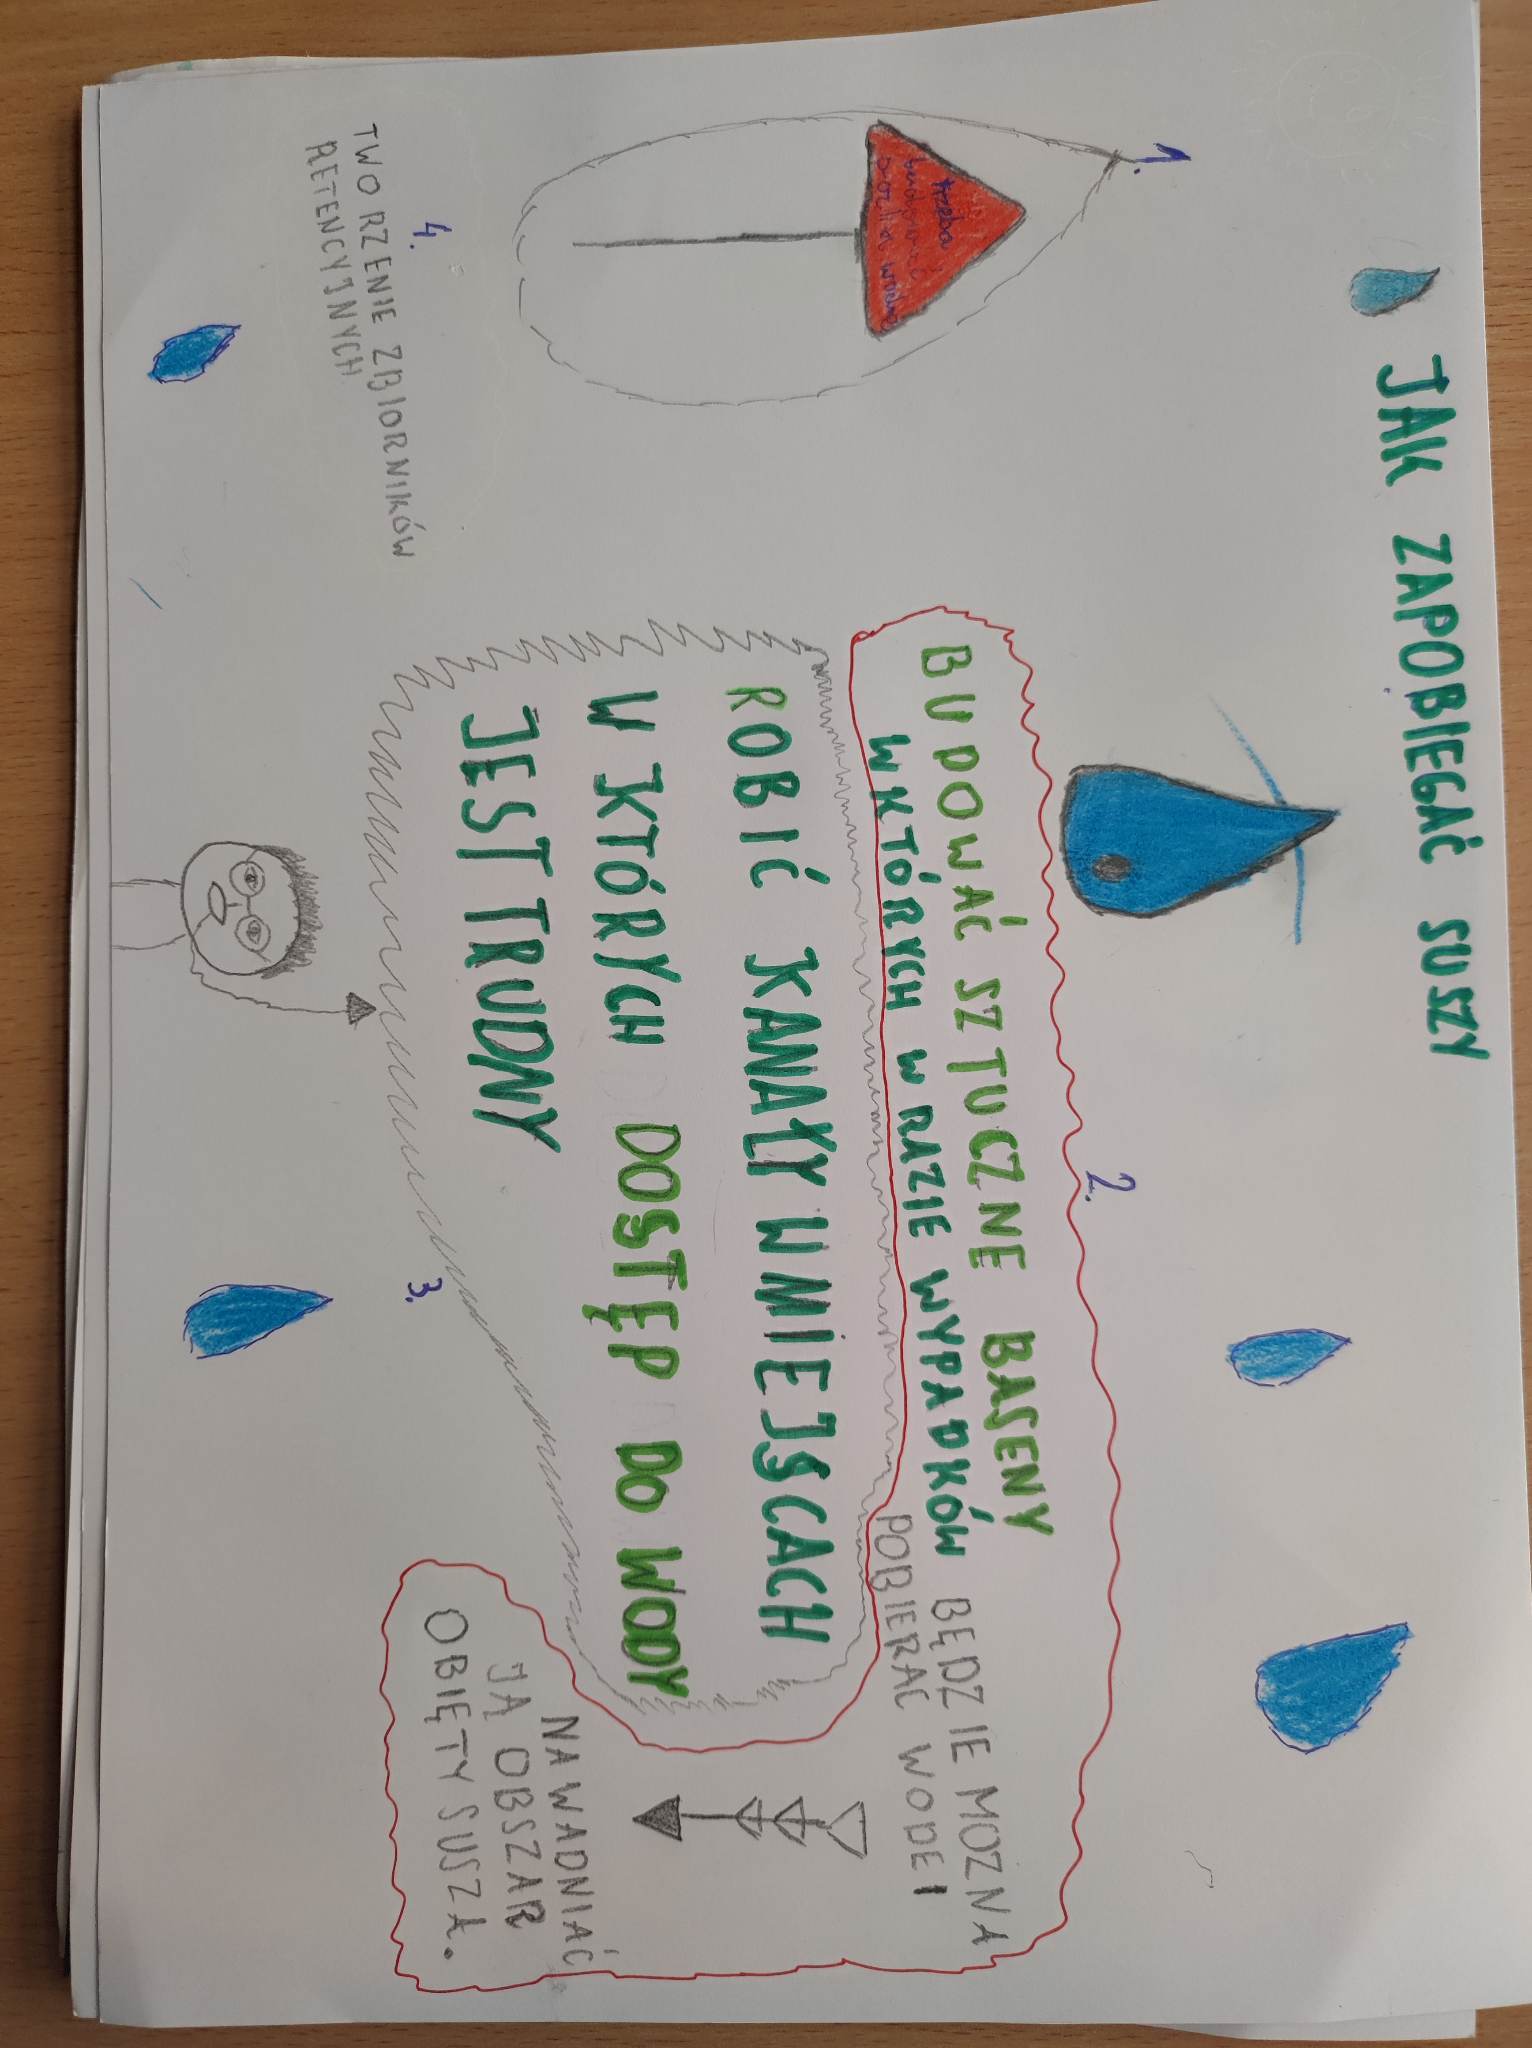 JAK ZAPOBIEGAĆ SUSZY
1.
trzeba
budować
źródła wodne
2.
BUDOWAĆ SZTUCZNE BASENY
W KTÓRYCH W RAZIE WYPADKÓW BĘDZIE MOZNA
POBIERAC WODE I
NAWADNIAĆ
JĄ OBSZAR
OBIĘTY SUSZA.
3.
ROBIĆ KANAŁY W MIEJSCACH
W KTÓRYCH DOSTĘP DO WODY
JEST TRUDNY
4.
TWORZENIE ZBIORNIKÓW
RETENCYJNYCH